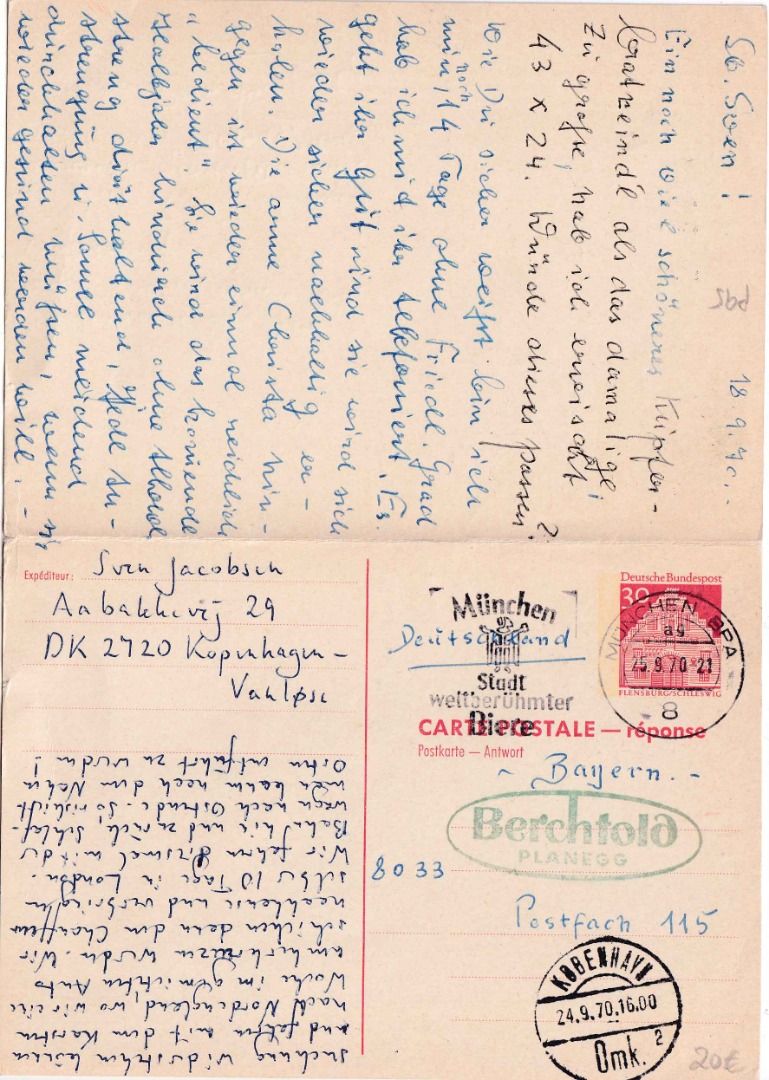 Lb. Sven!
18.9.70.-
Ein noch viel schöneres Kupfer-
bratreindl als das damalige,
zu große, hab ich erwischt
43 x 24. Würde dieses passen?
Wie Du sicher weißt bin ich
min, noch 14 Tage ohne Friedl. Grad
hab ich mit ihr telefoniert. Es
geht ihr gut und sie wird sich
wieder sicher nachhaltig er-
holen. Die arme Christa hin-
gegen ist wieder einmal reichlich
"bedient". Sie wird das kommende
Halbjahr hindurch ohne Alkohol
streng diät haltend, jede An-
strengung u. Sonne meidend
durchhalten müssen, wenn sie
wieder gesund werden will.-
Expéditeur: Sven Jacobsen
Aabakkevej 29
DK 2720 Kopenhagen-
Vanløse
suchung widerstehen können
und fahren mit dem Karsten
nach Nordengland, wo wir eine
Woche im gemieteten Auto
umherkreuzen werden. Wir
schicken dann den Chauffeur
nachhause und verbringen
selbst 10 Tage in London.
Wir fahren diesmal mit der
Bahn hin und zurück Schlaf-
wagen nach Ostende. So riskiert
man kaum noch dem Nahen
Osten entführt zu werden!
Deutsche Bundespost
30
FLENSBURG/SCHLESWIG
MÜNCHEN BPA
ag
25.9.70-21
8
München
Stadt
weltberühmter
Biere
Deutschland
CARTE POSTALE — réponse
Postkarte — Antwort
- Bayern.-
Berchtold
PLANEGG
8033
Postfach 115
KØBENHAVN
24.9.70.16.00
Omk. 2
20€